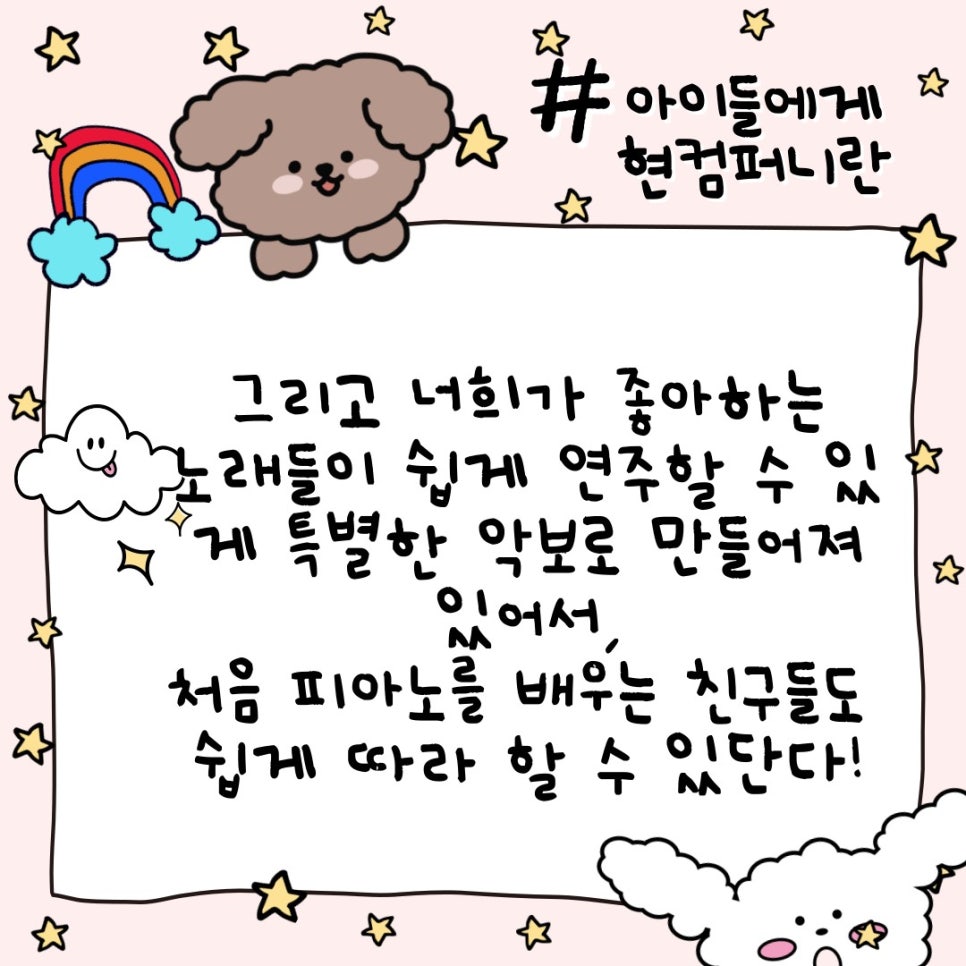 # 아이들에게
현컴퍼니란
그리고 너희가 좋아하는
노래들이 쉽게 연주할 수 있
게 특별한 악보로 만들어져
있어서,
처음 피아노를 배우는 친구들도
쉽게 따라 할 수 있단다!